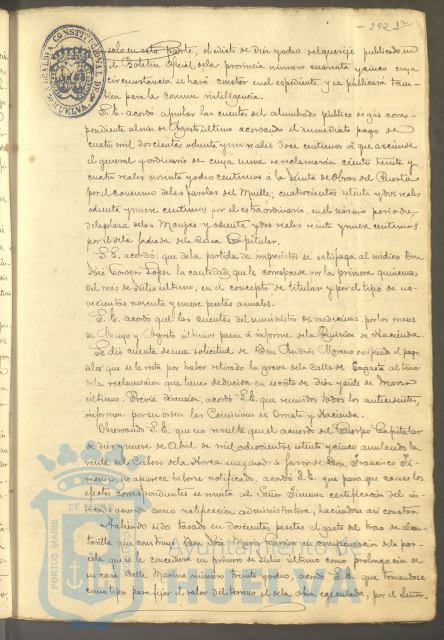 292
ALCALDIA CONSTITUCIONAL DE HUELVA
solo en esta parte, el edicto de diez y ocho del que rije publicado en
el Boletin Oficial de la provincia número cuarenta y cinco cuya
circunstancia se hará constar en el espediente y se publicará tam-
bien para la comun inteligencia.
S.E. acordó aprobar las cuentas del alumbrado público de gás corres-
pondiente al mes de Agosto último acordando el inmediato pago de
cuatro mil doscientos ochenta y un reales doce centimos á que asciende
el general y ordinario de cuya suma se reclamarán ciento treinta y
cuatro reales noventa y ocho centimos á la Junta de Obras del Puerto
por el consumo de las farolas del Muelle; cuatrocientos setenta y dos reales
ochenta y nueve centimos por el extraordinario, en el mismo periodo,
de la plaza de las Monjas y ochenta y dos reales veinte y nueve centimos
por il de la fachada de la Casa Capitular.
S.E. acordó: que de la partida de imprevistos se satisfaga al médico Don
José Coroni Lopez la cantidad que le corresponde por la primera quincena
del mes de Julio último, en el concepto de titular y por el tipo de no-
vecientos noventa y nueve pesetas anuales.
S.E. acordó que las cuentas del suministro de medicinas, por los meses
de Mayo y Agosto últimos pasen á informe de la Comision de Hacienda.
Se dió cuenta de una solicitud de Don Andrés Moreno exijiendo el pago
de lo que se le resta por haber retirado la grava de la Calle de Sagasta al tenor
de la reclamacion que tiene deducida en escrito de diez y siete de Marzo
último. Prévia discusion, acordó S.E. que reunidos todos los antecedentes,
informen por su orden las Comisiones de Ornato y Hacienda.
Observando S.E. que no resulta que el acuerdo del Cuerpo Capitular
de diez y nueve de Abril de mil ochocientos setenta y cinco anulando la
venta del Cabezo de la Horca enagenado á favor de Don Francisco Ji-
menez, no aparece informe notificado, acordó S.E. que para que cause los
efectos correspondientes se remita al Señor Jimenez certificacion del in-
dicado acuerdo como notificacion administrativa, haciendose así constar.
Habiendo sido tasado en doscientas pesetas el gasto del trozo de alcan-
tarilla que construyó Don José Maria Garzon en compensacion de la par-
cela que se le concediera en primero de Julio último como prolongacion de
su casa Calle Marina número treinta y ocho, acordó S.E. que tomandose
como tipo para fijar el valor del terreno el de la obra ejecutada, por el Señor
PORTUS MARIS ET TERRE CUSTODIA
Ayuntamiento de
HUELVA